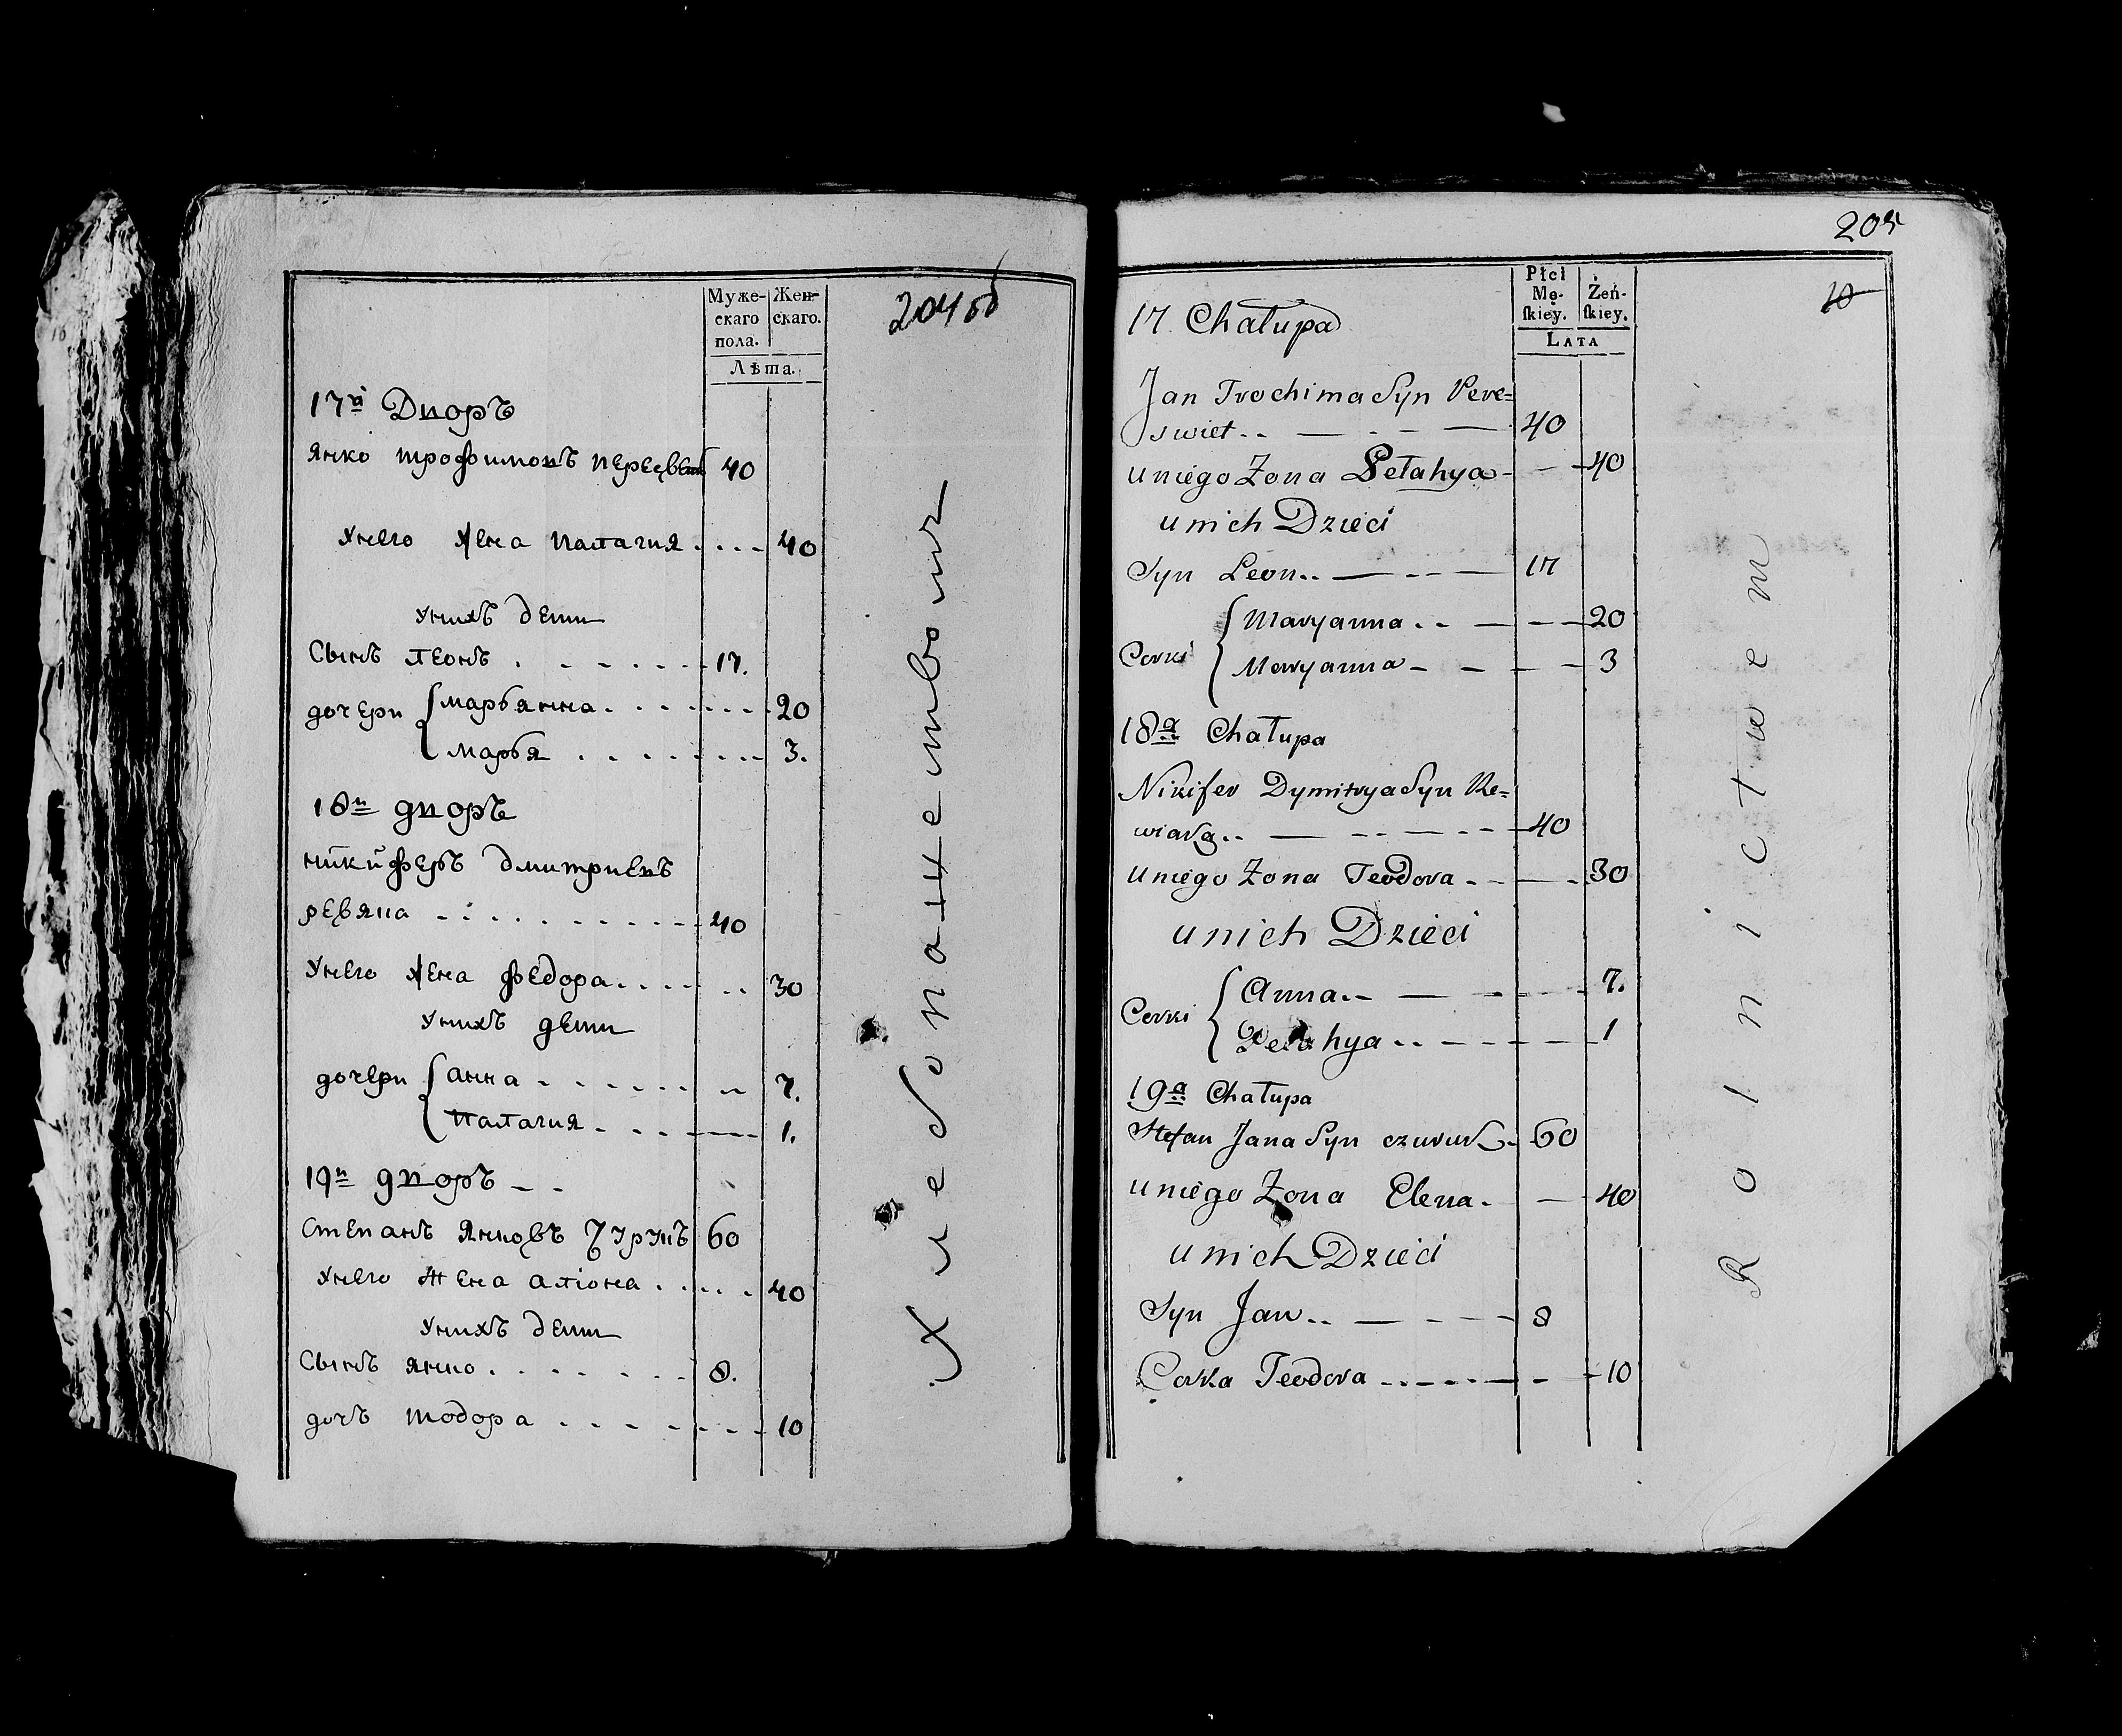 204 об
Муже-
скаго
пола.
Жен-
скаго.
Лѣта.
17й Дворъ
Янко трофимовъ пересвет 40
Унего жена палагия .... 40
Унихъ дети
Сынъ леонъ . - - - - - - 17.
дочери { марьянна . . - - - - 20
марья . . . - - - 3.
18й дворъ
никиферъ дмитриевъ
ревяка - - . . . . - - - - 40
Унего жена федора . . . . . . 30
Унихъ дети
дочери { анна - - - - - - 7.
палагия - - - - - 1.
19й дворъ - -
степанъ Янковъ Чурукъ 60
Унего жена алiона . . . . 40
Унихъ дети
Сынъ янко . . . . - - - 8.
дочъ тодора . . . - - - 10
Хлебопашеством
205
10
Płci
Mę-
skiey.
Żeń-
skiey.
LATA
17. Chałupa
Jan Trochima Syn Pere=
swiet .. — - - — 40
u niego Zona Pełahya - — 40
u nich Dzieci
Syn Leon .. — - - — 17
Corki { Maryanna . - — - — 20
Maryanna - - — - — 3
18a Chałupa
Nikifer Dymitrya Syn Re=
wiaka .. — - - — - - 40
u niego Zona Teodora - - — - 30
u nich Dzieci
Corki { Anna . - — - - — 7.
Pełahya .. - - - - 1
19a Chałupa
Stefan Jana Syn czuruk - 60
u niego Zona Elena - — 40
u nich Dzieci
Syn Jan .. — - - - 8
Corka Teodora - - - - - — - 10
Rolnictwem